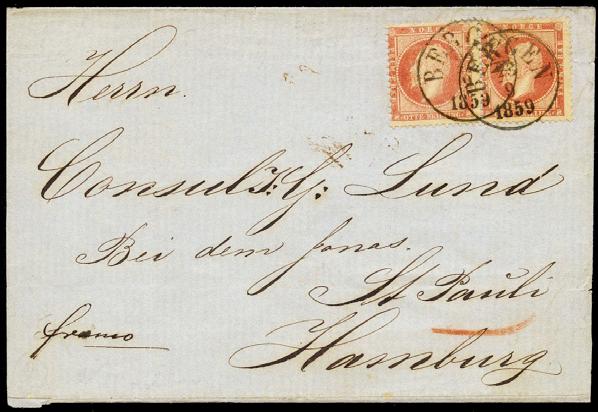 NORGE NORGE
BERGEN BERGEN
9
1859 1859
Herrn.
Consul F. G: Lund
Bei dem Jonas.
St Pauli
franco
Hamburg.